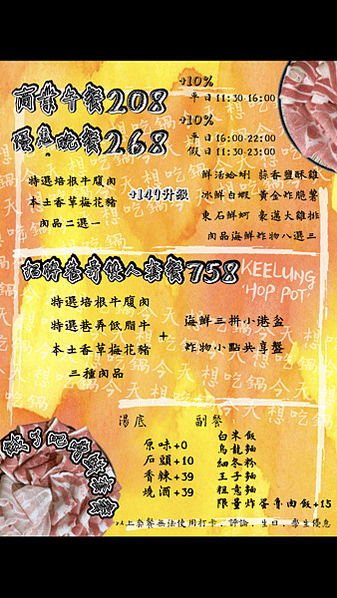 商業午餐208
+10%
平日11:30-16:00
優惠晚餐268
+10%
平日16:00-22:00
假日11:30-23:00
特選培根牛腹肉
本土香草梅花豬
肉品二選一
+149升級
鮮活蛤蜊 蒜香鹽酥雞
冰鮮白蝦 黃金炸脆薯
東石鮮蚵 豪邁大雞排
肉品海鮮炸物八選三
758
KEELUNG
'HOP POT'
特選培根牛腹肉
特選巷弄低脂牛
本土香草梅花豬
三種肉品
+
海鮮三拼小港盆
炸物小點共享盤
湯底
原味+0
石頭+10
香辣+39
燒酒+39
副餐
白米飯
烏龍麵
細冬粉
王子麵
粗意麵
限量炸蛋魯肉飯+15
以上套餐無法使用打卡、評論、生日、學生優惠
今天想吃鍋